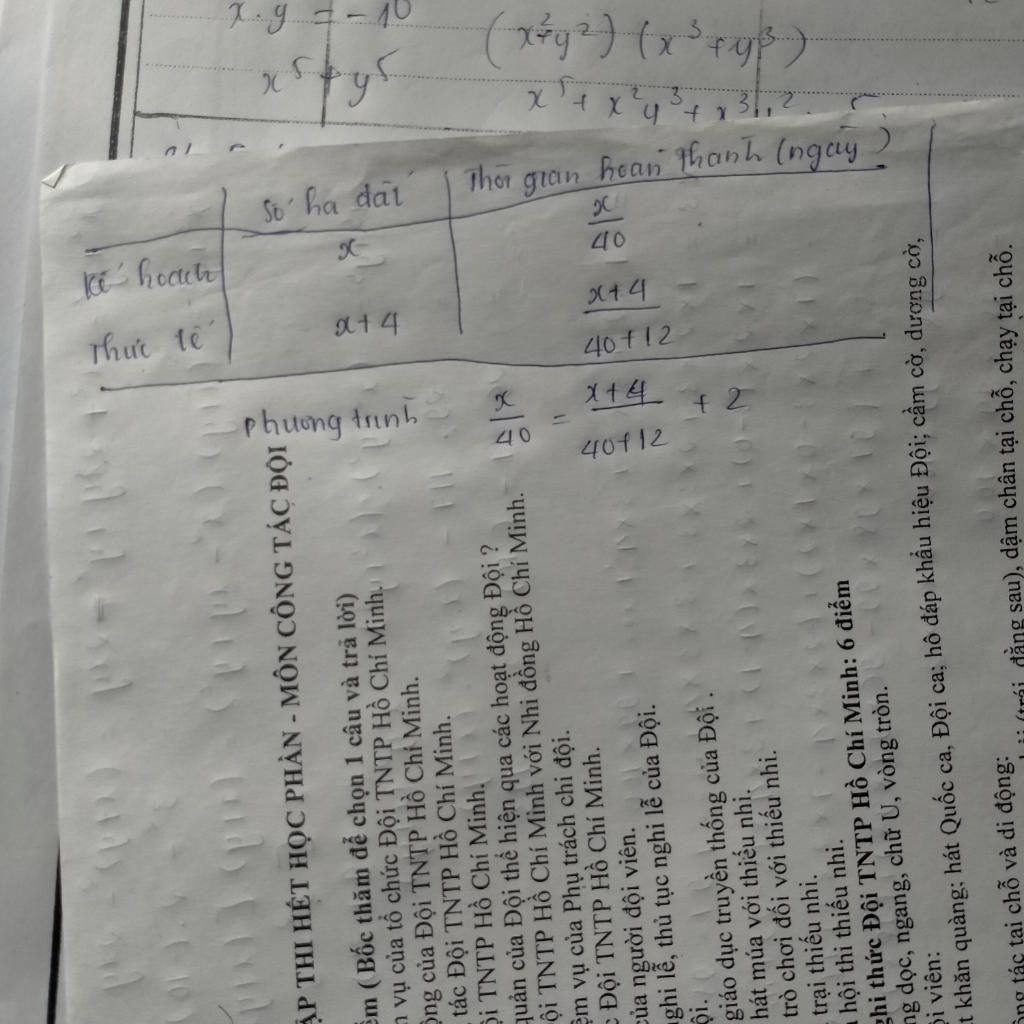 x.y = -10
(x²+y²) (x³+y³)
x⁵+y⁵
x⁵ + x²y³ + x³y²
Số ha đất
Thời gian hoàn thành (ngày)
Kế hoạch
x
x/40
Thực tế
x+4
x+4/40+12
phương trình x/40 = x+4/40+12 + 2
ẬP THI HẾT HỌC PHẦN - MÔN CÔNG TÁC ĐỘI
ểm (Bốc thăm để chọn 1 câu và trả lời)
m vụ của tổ chức Đội TNTP Hồ Chí Minh.
ộng của Đội TNTP Hồ Chí Minh.
tác Đội TNTP Hồ Chí Minh.
ội TNTP Hồ Chí Minh.
quán của Đội thể hiện qua các hoạt động Đội ?
ội TNTP Hồ Chí Minh với Nhi đồng Hồ Chí Minh.
ệm vụ của Phụ trách chi đội.
c Đội TNTP Hồ Chí Minh.
của người đội viên.
nghi lễ, thủ tục nghi lễ của Đội.
ội.
giáo dục truyền thống của Đội .
hát múa với thiếu nhi.
trò chơi đối với thiếu nhi.
trại thiếu nhi.
hội thi thiếu nhi.
ghi thức Đội TNTP Hồ Chí Minh: 6 điểm
ng dọc, ngang, chữ U, vòng tròn.
ội viên:
t khăn quàng; hát Quốc ca, Đội ca; hô đáp khẩu hiệu Đội; cầm cờ, dương cờ,
ộng tác tại chỗ và di động:
(trái, đằng sau), dậm chân tại chỗ, chạy tại chỗ.